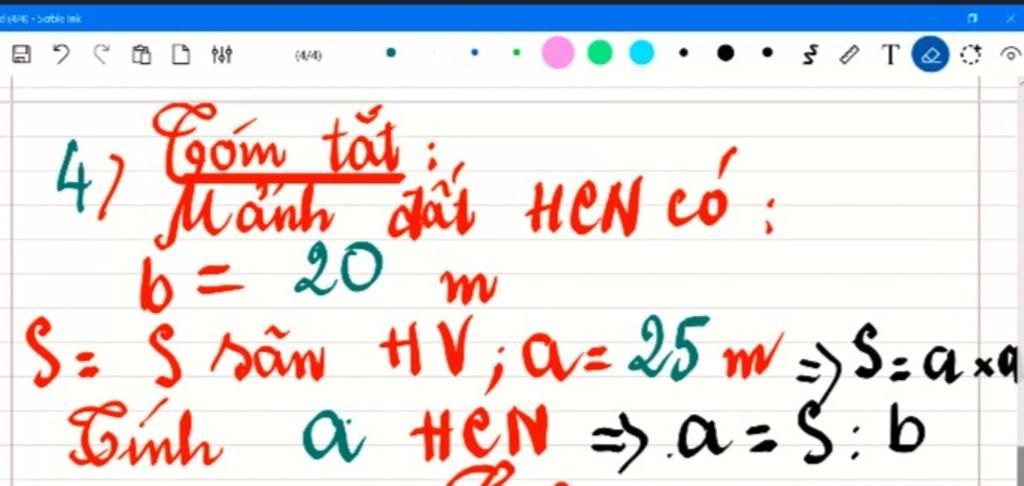 (4/4) - Scrble Ink
(4/4)
T
4) Tóm tắt:
Mảnh đất HCN có:
b = 20 m
S = S sân HV; a = 25 m => S = a x a
Tính a HCN => a = S : b